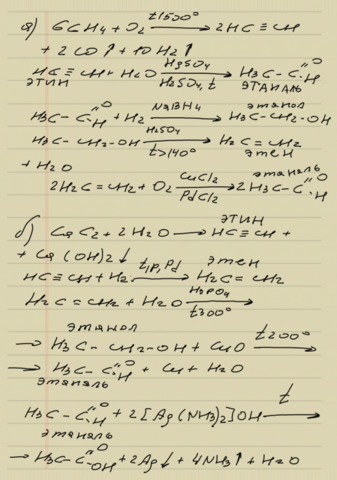 а) 6CH4 + O2 t1500° → 2HC≡CH
+ 2CO↑ + 10H2↑
HC≡CH + H2O HgSO4 / H2SO4, t → H3C-C=O H
ЭТИН ЭТАНАЛЬ
H3C-C=O H + H2 NaBH4 → H3C-CH2-OH этанол
H3C-CH2-OH H2SO4 / t>140° → H2C=CH2 этен
+ H2O
2H2C=CH2 + O2 CuCl2 / PdCl2 → 2H3C-C=O H этаналь
б) CaC2 + 2H2O → HC≡CH + ЭТИН
+ Ca(OH)2↓
HC≡CH + H2 t,p,Pd → H2C=CH2 этен
H2C=CH2 + H2O H3PO4 / t300° →
этанол
→ H3C-CH2-OH + CuO t200° →
→ H3C-C=O H + Cu + H2O
этаналь
H3C-C=O H + 2[Ag(NH3)2]OH t →
этаналь
→ H3C-C=O OH + 2Ag↓ + 4NH3↑ + H2O